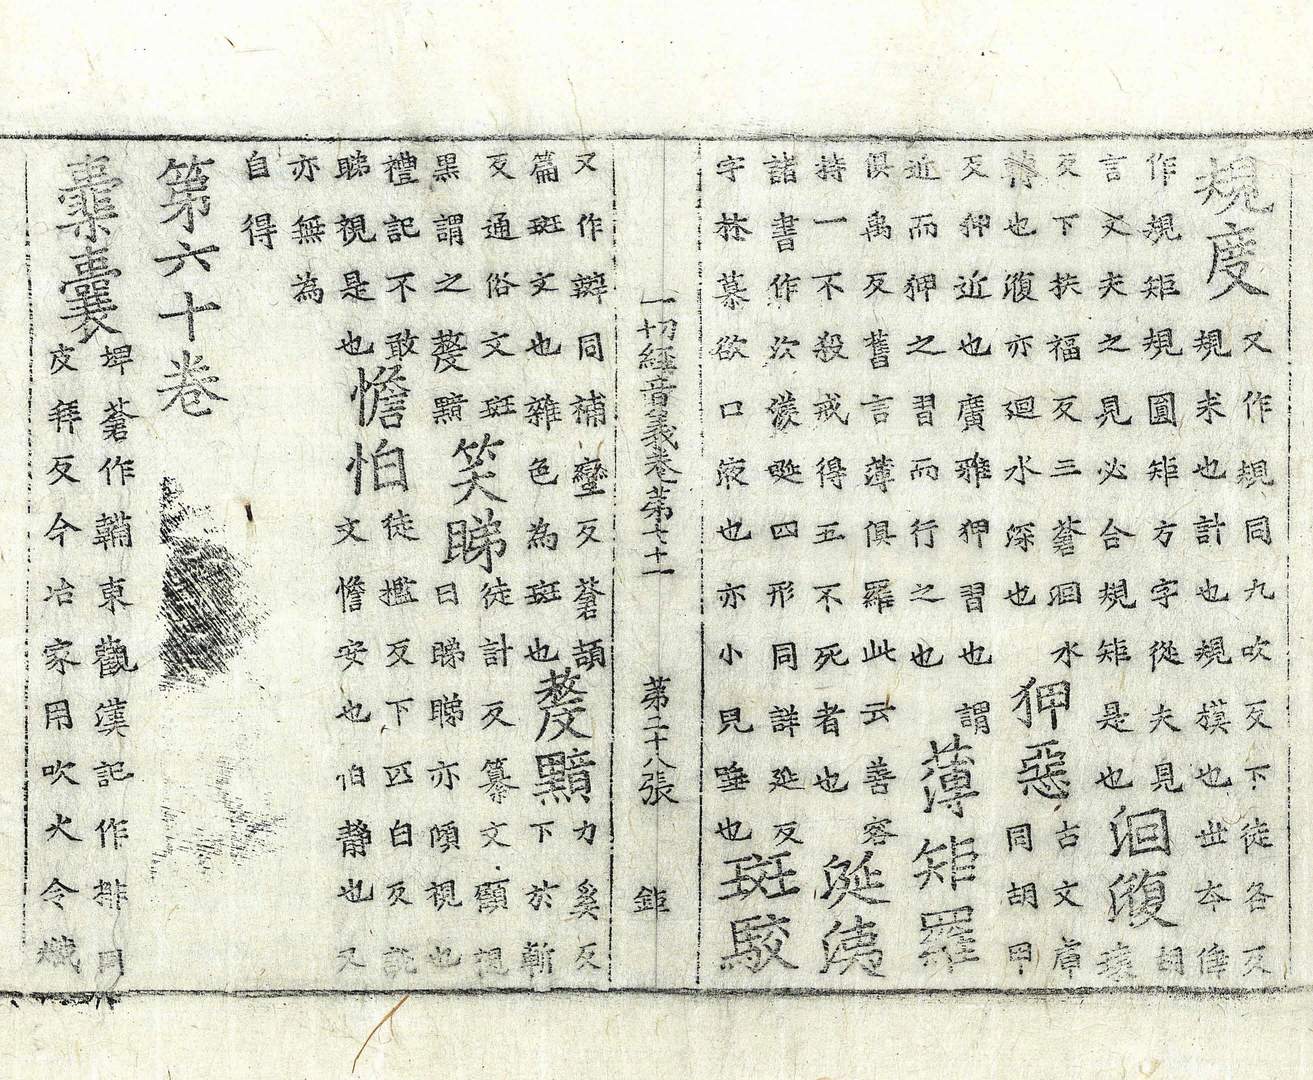 規度
又作規同九吹反下徒各反
規求也計也規摸也世本倕
作規矩規圓矩方字從夫見
言丈夫之見必合規矩是也
洄澓
胡
瓌
反下扶福反三蒼洄水
轉也澓亦迴水深也
狎惡
古文庘
同胡甲
反狎近也廣雅狎習也謂
近而狎之習而行之也
薄矩羅
俱禹反舊言薄俱羅此云善容
持一不殺戒得五不死者也
涎洟
諸書作㳄㵪唌四形同詳延反
字林慕欲口液也亦小見唾也
斑駮
一切經音義卷第七十一 第二十八張 鉅
又作辬同補蠻反蒼頡
篇斑文也雜色為斑也
黶
力奚反
下於斬
反通俗文斑
黑謂之黶
笑睇
徒計反纂文顯視
曰睇睇亦傾視也
禮記不敢
睇視是也
憺怕
徒濫反下匹白反說
文憺安也怕靜也又
亦無為
自得
第六十卷
橐囊
埤蒼作韛東觀漢記作排同
皮拜反今冶家用吹火令熾